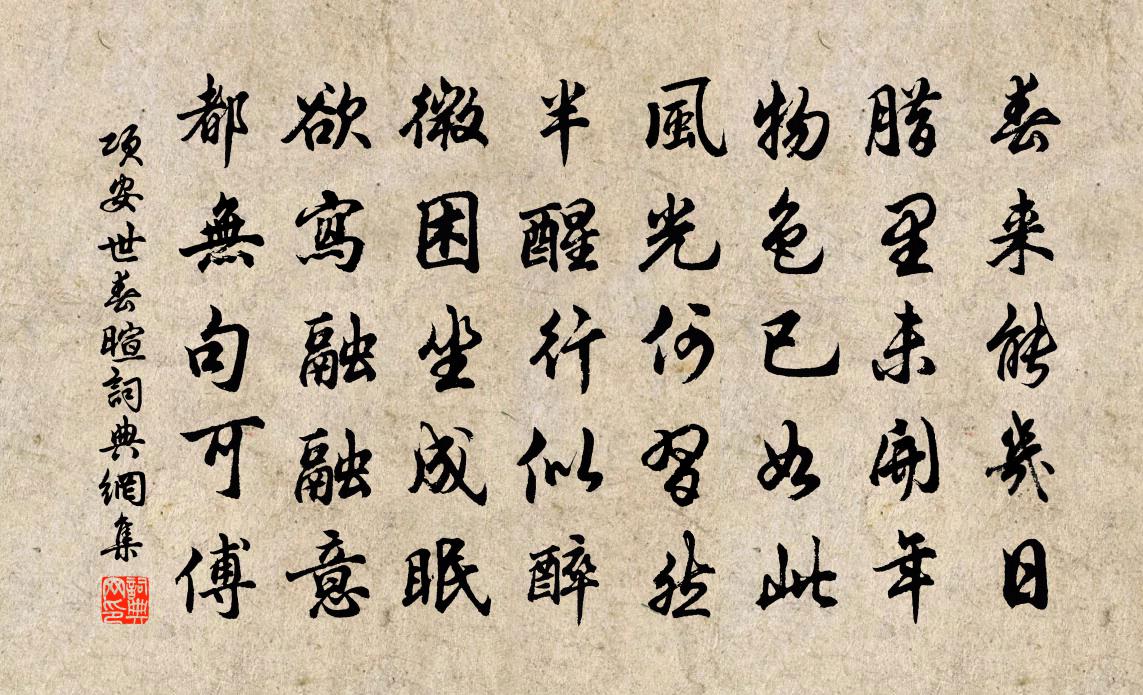 春来能幾日
腊里未開年
物色已如此
風光何習然
半醒行似醉
微困坐成眠
欲寫融融意
都無句可傅
項安世春暄詞典網集
詞典网印